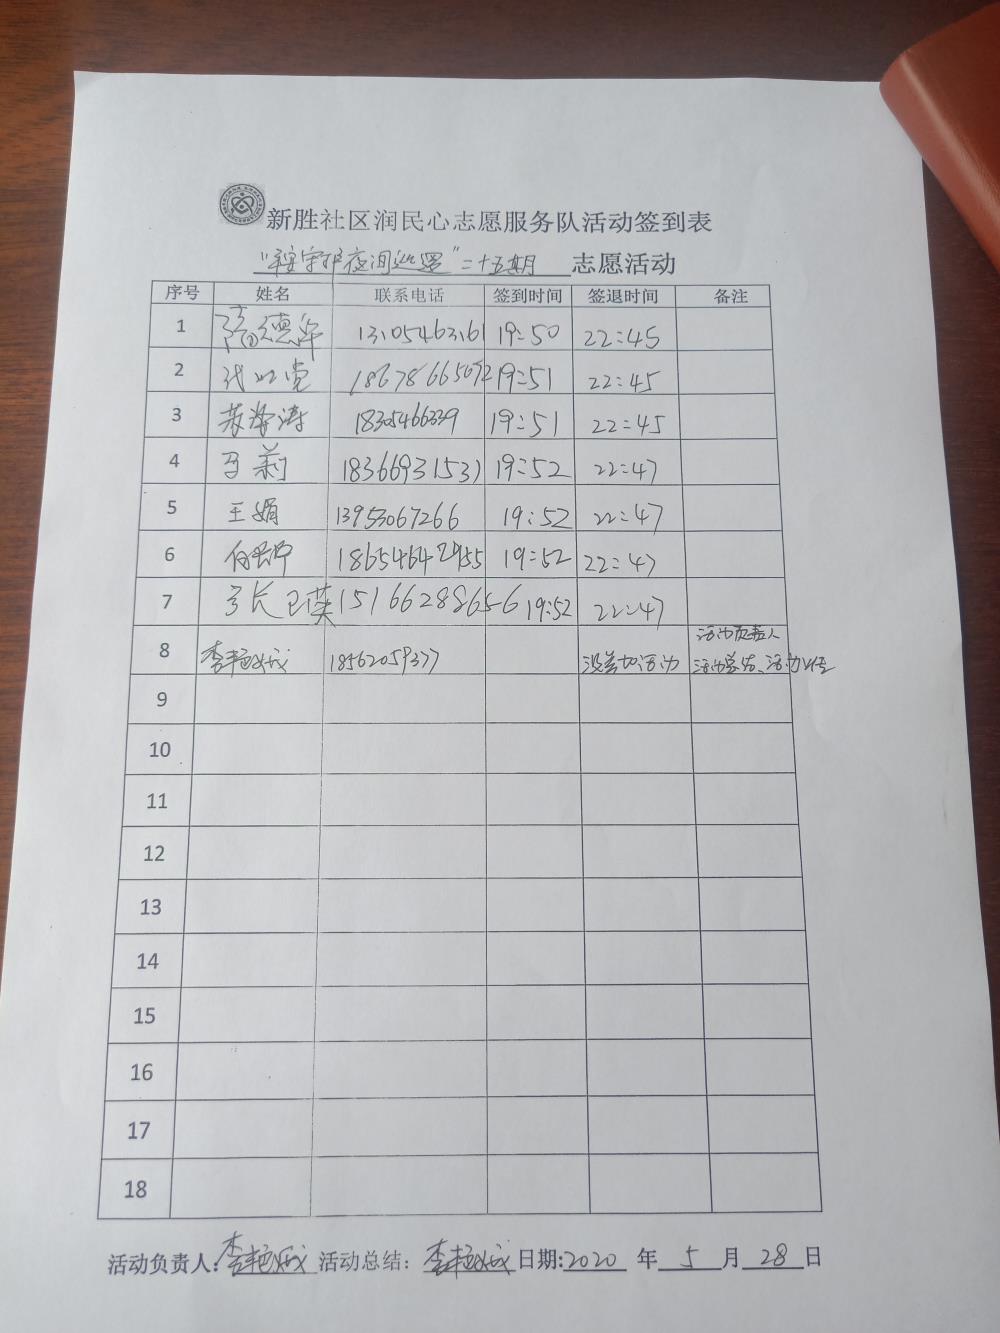 新胜社区润民心志愿服务队活动签到表
夜间巡逻"二十五期 志愿活动
序号 姓名 联系电话 签到时间 签退时间 备注
1 19:50 22:45
2 18678665072 19:51 22:45
3 苏海涛 19:51 22:45
4 马莉 18366931531 19:52 22:47
5 王娟 13953067266 19:52 22:47
6 18654642955 19:52 22:47
7 15166288656 19:52 22:47
8 李艳成 18562059377 没参加活动 活动负责人 活动总结、活动
9
10
11
12
13
14
15
16
17
18
活动负责人: 李艳成 活动总结: 李艳成 日期:2020 年 5 月 28 日